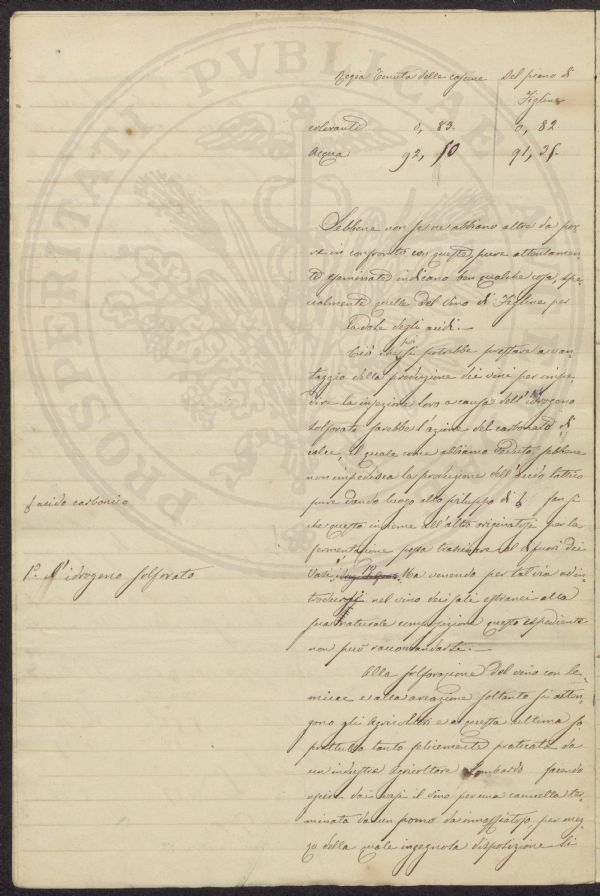 PROSPERITATI PVBLICAE
Regia Tenuta delle cascine Del piano di
Figline
coloranti 0, 83. 0, 82.
Acqua 92, 50 91, 25.
Sebbene non se ne abbiano altre da por
re in confronto con queste, pure attentamen
te esaminate indicano ben qualche cosa, spe
cialmente quelle del vino di Figline per
la dose degli acidi.
Ciò che poi si potrebbe prestare a van
taggio della produzione dei vini per impe
dire la infezione loro a causa dell'idrogeno
solforato sarebbe l'azione del carbonato di
calce, il quale come abbiamo veduto, sebbene
non impedisca la produzione dell'acido lattico
pure dando luogo allo sviluppo di f far si
f acido carbonico
che questo insieme all'altro originatosi per la
fermentazione possa trascinare al di fuori dei
vasi, Ma venendo per tal via ad in
1º. l'idrogeno solforato
trodursi nel vino dei sali estranei alla
sua naturale composizione questo espediente
non può raccomandarsi.
Alla solforazione del vino con le
micce e alla areazione soltanto si atten
gono gli Agricoltori e a questa ultima so
prattutto tanto felicemente praticata da
un industre Agricoltore Lombardo facendo
uscire dai vasi il vino per una cannella ter
minata da un pomo da innaffiatojo, per mez
zo della quale ingegnosa disposizione si